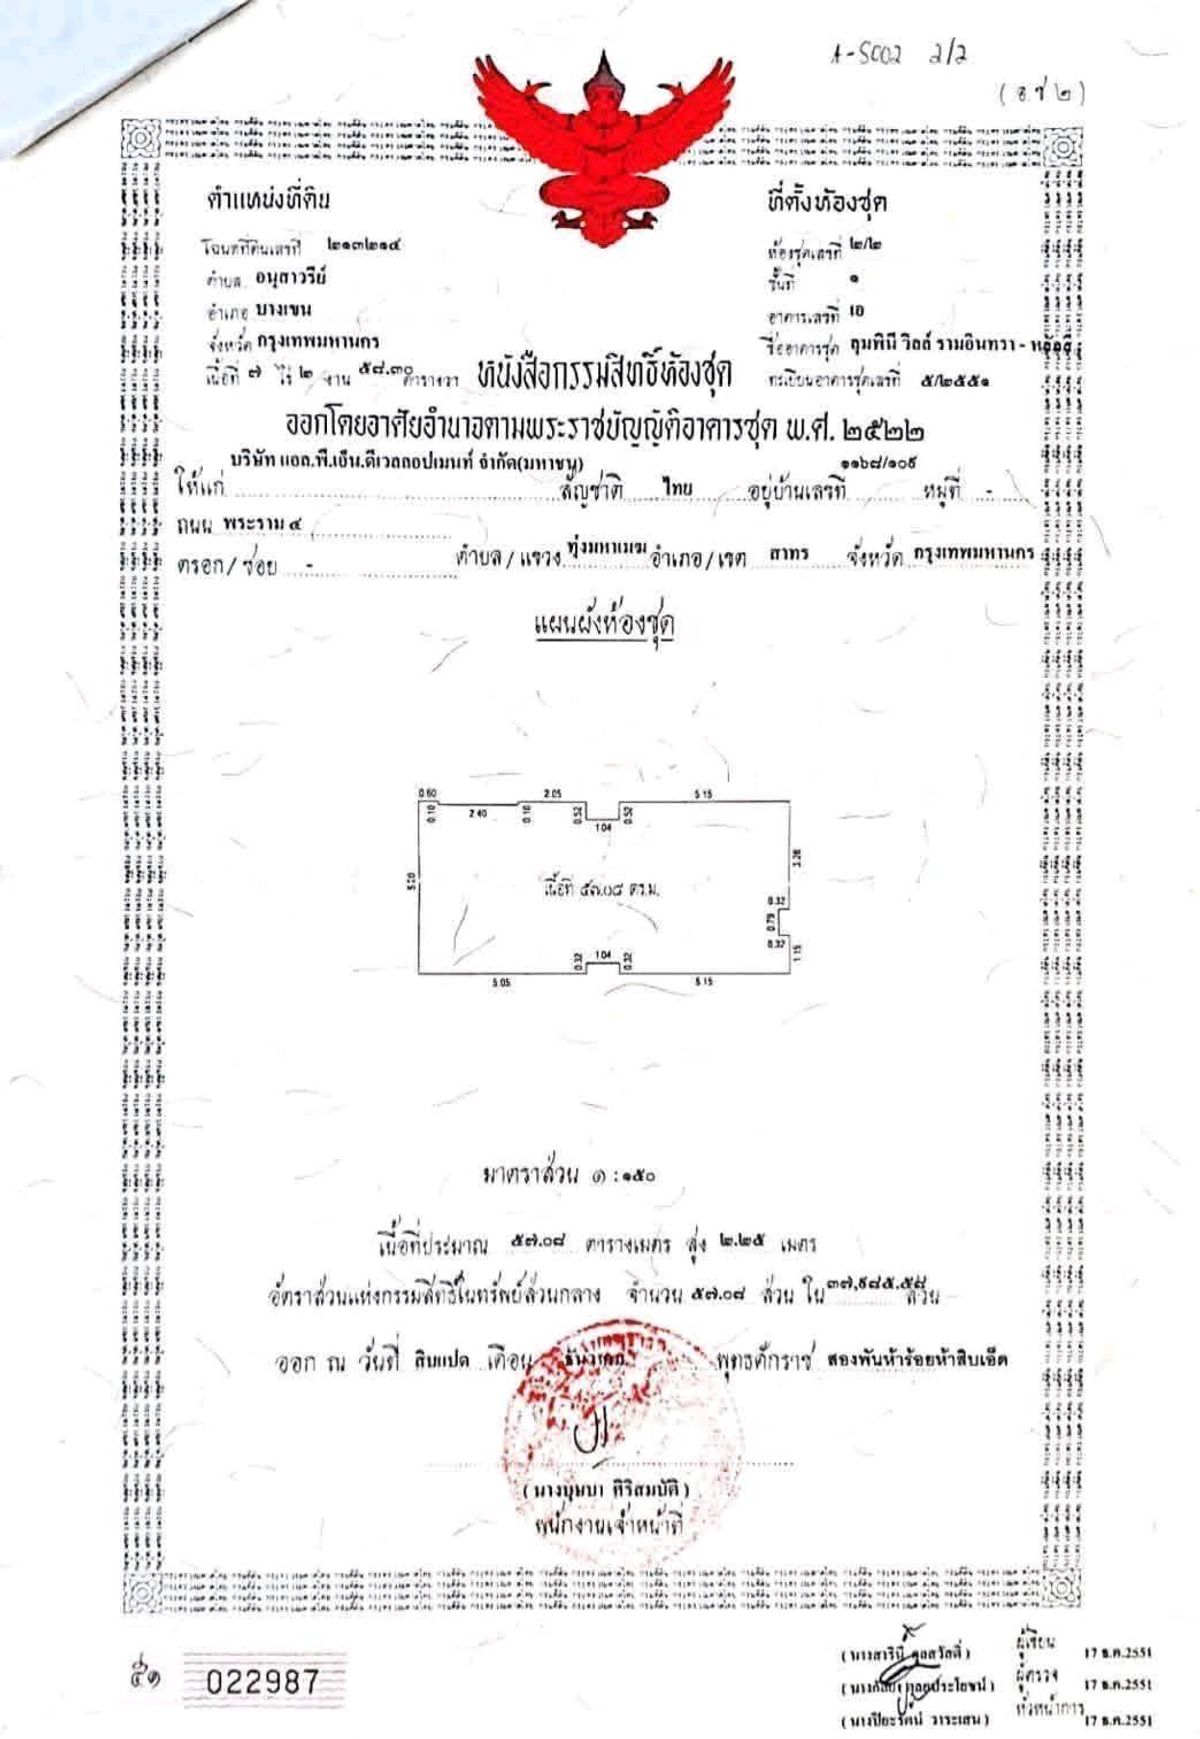 A-S002 2/2
(อ.ช ๒)
ตำแหน่งที่ดิน
โฉนดที่ดินเลขที่ ๒๑๓๒๑๔
ตำบล อนุสาวรีย์
อำเภอ บางเขน
จังหวัด กรุงเทพมหานคร
เนื้อที่ ๗ ไร่ ๒ งาน ๕๘.๓๐ ตารางวา
ที่ตั้งห้องชุด
ห้องชุดเลขที่ ๒/๒
ชั้นที่ ๑
อาคารเลขที่ เอ
ชื่ออาคารชุด ลุมพินี วิลล์ รามอินทรา -
ทะเบียนอาคารชุดเลขที่ ๕/๒๕๕๑
หนังสือกรรมสิทธิ์ห้องชุด
ออกโดยอาศัยอำนาจตามพระราชบัญญัติอาคารชุด พ.ศ. ๒๕๒๒
ให้แก่ บริษัท แอล.พี.เอ็น.ดีเวลลอปเมนท์ จำกัด(มหาชน) สัญชาติ ไทย อยู่บ้านเลขที่ ๑๑๖๘/๑๐๙ หมู่ที่ -
ถนน พระราม ๔
ตรอก/ซอย - ตำบล/แขวง ทุ่งมหาเมฆ อำเภอ/เขต สาทร จังหวัด กรุงเทพมหานคร
แผนผังห้องชุด
0.60 2.05 5.15
0.10 2.40 0.10 0.52 1.04 0.52
5.20 3.26
เนื้อที่ ๕๗.๐๘ ตร.ม.
0.32
0.79
0.32 1.15
0.32 1.04 0.32
5.05 5.15
มาตราส่วน ๑ : ๑๕๐
เนื้อที่ประมาณ ๕๗.๐๘ ตารางเมตร สูง ๒.๒๕ เมตร
อัตราส่วนแห่งกรรมสิทธิ์ในทรัพย์ส่วนกลาง จำนวน ๕๗.๐๘ ส่วน ใน ๓๗,๙๘๕.๕๘ ส่วน
ออก ณ วันที่ สิบแปด เดือน ธันวาคม พุทธศักราช สองพันห้าร้อยห้าสิบเอ็ด
(นางบุษบา ศิริสมบัติ)
พนักงานเจ้าหน้าที่
๕๑ 022987
(นางสารินี กุลสวัสดิ์) ผู้เขียน 17 ธ.ค.2551
ผู้ตรวจ 17 ธ.ค.2551
(นางปิยะรัตน์ วาระเสน) หัวหน้าการ 17 ธ.ค.2551